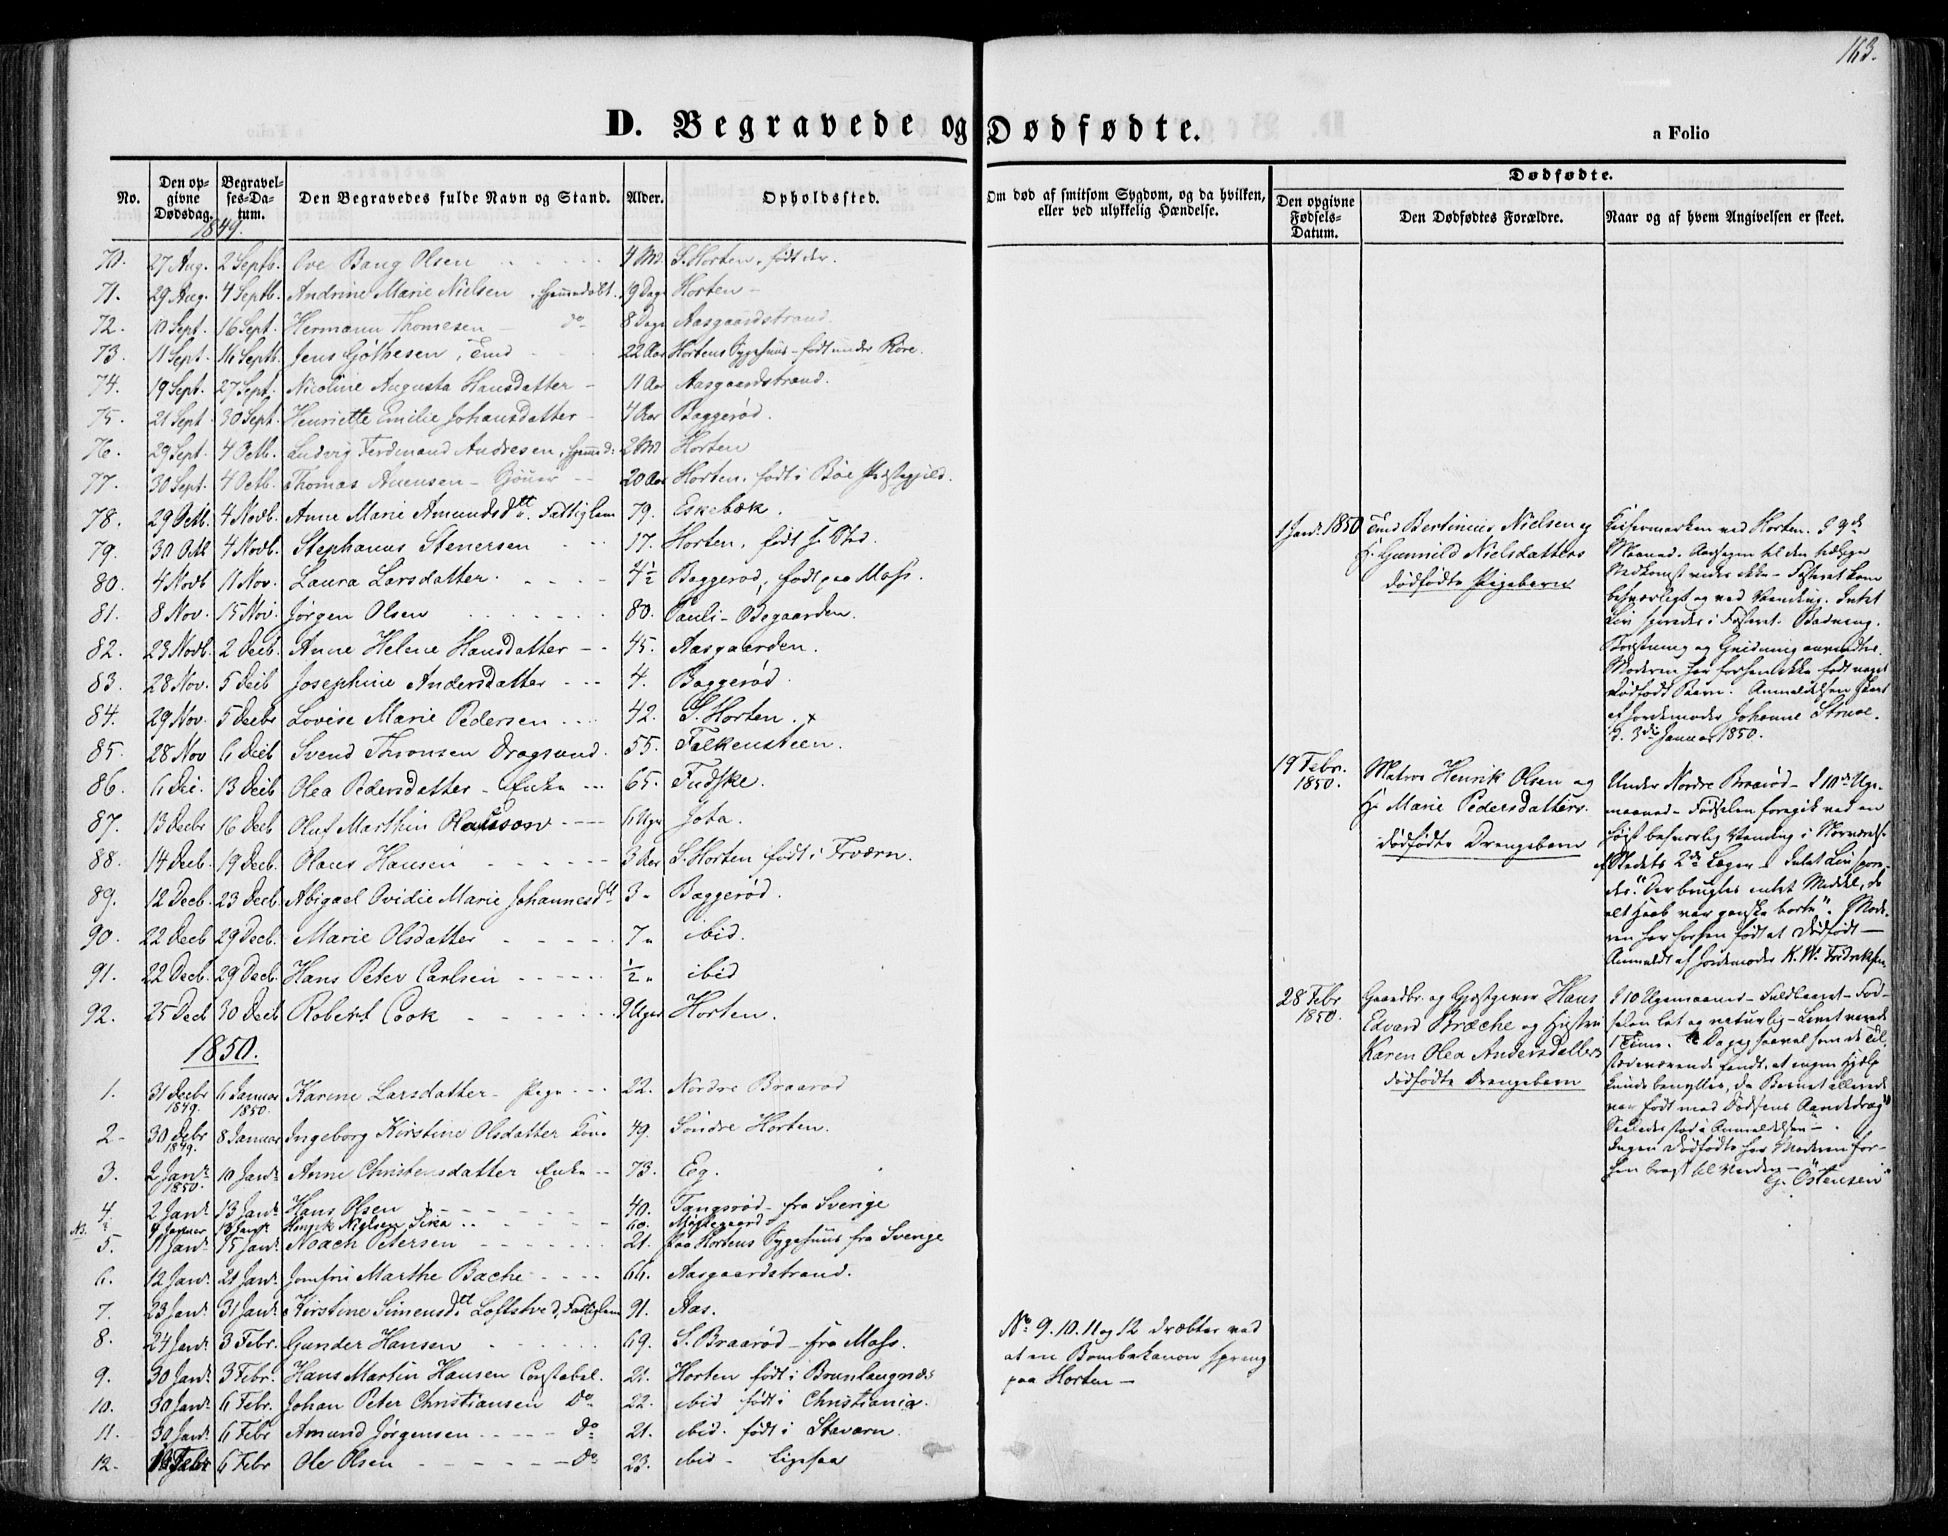 163.
D. Begravede og Dødfødte.
a Folio
No.
Den opgivne Dødsdag.
Begravelses-Datum.
Den Begravedes fulde Navn og Stand.
Alder.
Opholdssted.
Om død af smitsom Sygdom, og da hvilken, eller ved ulykkelig Hændelse.
Dødfødte.
Den opgivne Fødsels-Datum.
Den Dødfødtes Forældre.
Naar og af hvem Angivelsen er skeet.
1849.
70. 27 Aug. 2 Septr. Ove Bang Olsen 4 Md. S. Horten, født der.
71. 29 Aug. 4 Septb. Andrine Marie Nielsen, hjemmedøbt. 19 Dage Horten
72. 10 Sept. 16 Sept. Hermann Thomesen do 8 Dage Aasgaardstrand
73. 11 Sept. 16 Septb. Jens Gøthesen, 22 Aar Hortens Sygehuus - født under Røre.
74. 19 Sept. 27 Sept. Nicoline Augusta Hansdatter 11 Aar Aasgaardstrand.
75. 21 Sept 30 Sept. Henriette Emilie Johansdatter 4 Aar Baggerød.
76. 29 Sept. 4 Octb. Ludvig Ferdinand Andresen, hjemmed: 2 Md Horten
77. 30 Sept. 4 Octb. Thomas Auensen - 20 Aar Horten, født i Bøe Præstegjeld.
78. 29 Octb. 4 Novb. Anne Marie Amundsdtt. Fattiglem 79. Eskebæk.
79. 30 Octb 4 Novb. Stephanus Stenersen 17. Horten, født s. Sted.
80. 4 Novb 11 Nov. Laura Larsdatter. 4½ Baggerød, født paa Moss.
81. 8 Nov. 15 Nov. Jørgen Olsen 80. Pauli-Bøgaarden.
82. 23 Novb. 2 Decb. Anne Helene Hansdatter 45. Aasgaarden.
83. 28 Nov. 5 Decb Josephine Andersdatter 4. Baggerød.
84. 29 Nov. 5 Decbr Lovise Marie Pedersen 42. S. Horten.
85. 28 Nov 6 Decb Svend Thronsen Dragsund. 55. Falkensteen.
86. 6 Dec. 13 Decb Olea Pedersdatter - Enke 65. Fudske.
87. 13 Decbr 16 Decb Oluf Marthin 6 Uger Joba.
88. 14 Decb. 19 Decb. Olaus Hansen 3 Aar S. Horten født i Fr.værn.
89. 12 Decb. 23 Decb. Abigael Ovidie Marie Johannesdtt 3 " Baggerød.
90. 22 Decb 29 Decb. Marie Olsdatter 7 " ibid.
91. 22 Decb. 29 Decb. Hans Peter Carlsen ½ " ibid
92. 25 Decb 30 Decb Robert Cook 9 Uger Horten.
1850.
1. 31 Decbr 1849. 6 Januar 1850. Karine Larsdatter - Pige 22. Nordre Braarød
2 - 30 Debr 1849. 8 Januar Ingeborg Kirstine Olsdatter Kone 49. Søndre Horten.
3. 2 Janr. 1850. 10 Janr. Anne Christensdatter Enke 73. Eeg.
4. 2 Janr. 13 Janr. Hans Olsen 40. Tangsrød - fra Sverige
4½ Henrik Nielsen 60.
5. 11 Janr. 15 Janr. Noach Petersen 21. paa Hortens Sygehuus fra Sverige
6. 12 Janr. 21 Janr. Jomfru Marthe Bache 66. Aasgaardstrand.
7. 23 Janr. 31 Janr. Kirstine Simensdtt. Løftstved, Fattiglem 91. Aas.
8. 24 Janr. 3 Febr. Gunder Hansen 69. S. Braarød - fra Moss.
9. 30 Janr. 3 Febr. Hans Martin Hansen Constabel. 21. Horten født i Brunlaugnæs
10. 30 Janr. 6 Febr. Johan Peter Christiansen Do 22. ibid født i Christiania.
11. 30 Janr. 6 Febr Amund Jørgensen do 21. ibid. født i Staværn.
12. 6 Febr Ole Olsen do 23. ibid - ligesaa
No 9. 10. 11 og 12 dræbtes ved
at en Bombekanon sprang
paa Horten -
1 Janr. 1850
Bertinius Nielsen og
H. Gunnild Nielsdatters
dødfødte Pigebarn
Keisermarken ved Horten. I 9de
Maaned. Aarsagen til den
Nedkomst vides ikke - Fosteret kom
besværligt og ved Vending. Intet
Liv sporedes i Fosteret. Badning,
Børstning og Gnidning anvendtes.
Moderen har forhen ikke født noget
dødfødt Barn. Anmeldelsen skeet
af Jordemoder Johanne Struve.
d. 3de Januar 1850.
19 Febr. 1850.
Matros Henrik Olsen og
H. Marie Pedersdatters
dødfødte Drengebarn
Under Nordre Braarød - I 10de Uge-
maaned - Fødselen foregik ved en
høist besværlig Vending i Nærværelse
af Stedets 2de Læger - Intet Liv spore-
des. "Der brugtes intet Middel, da
alt Haab var ganske borte". Mode-
ren har forhen født et dødfødt -
Anmeldt af Jordemoder K. W. Fredriksen
28 Febr 1850.
Gaardbr. og Gjæstgiver Hans
Edvard Bræche og Hustru
Karen Olea Andersdatters
dødfødte Drengebarn
I 10 Ugemaaned - Fuldbaaret - Fød-
selen let og naturlig - Livet varede
1 Time. Da jeg saavel som de Til-
stedeværende fandt, at ingen Hjælp
kunde benyttes, da Barnet allerede
var født med Dødsens Aandedrag"
Saaledes stod i Anmeldelsen -
Ingen Dødfødte har Moderen for-
hen bragt til Verden -
Østensen